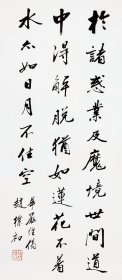 於諸惑業及魔境世間道
中得解脱猶如蓮花不着
水亦如日月不住空
華嚴經偈
趙樸初